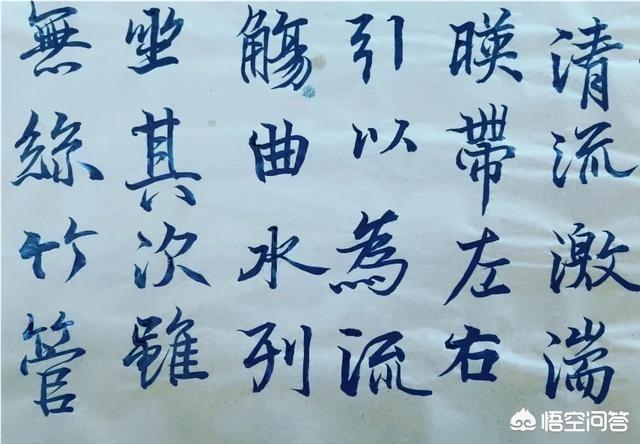 清流激湍
暎帶左右
引以為流
觴曲水列
坐其次雖
無絲竹管
悟空问答